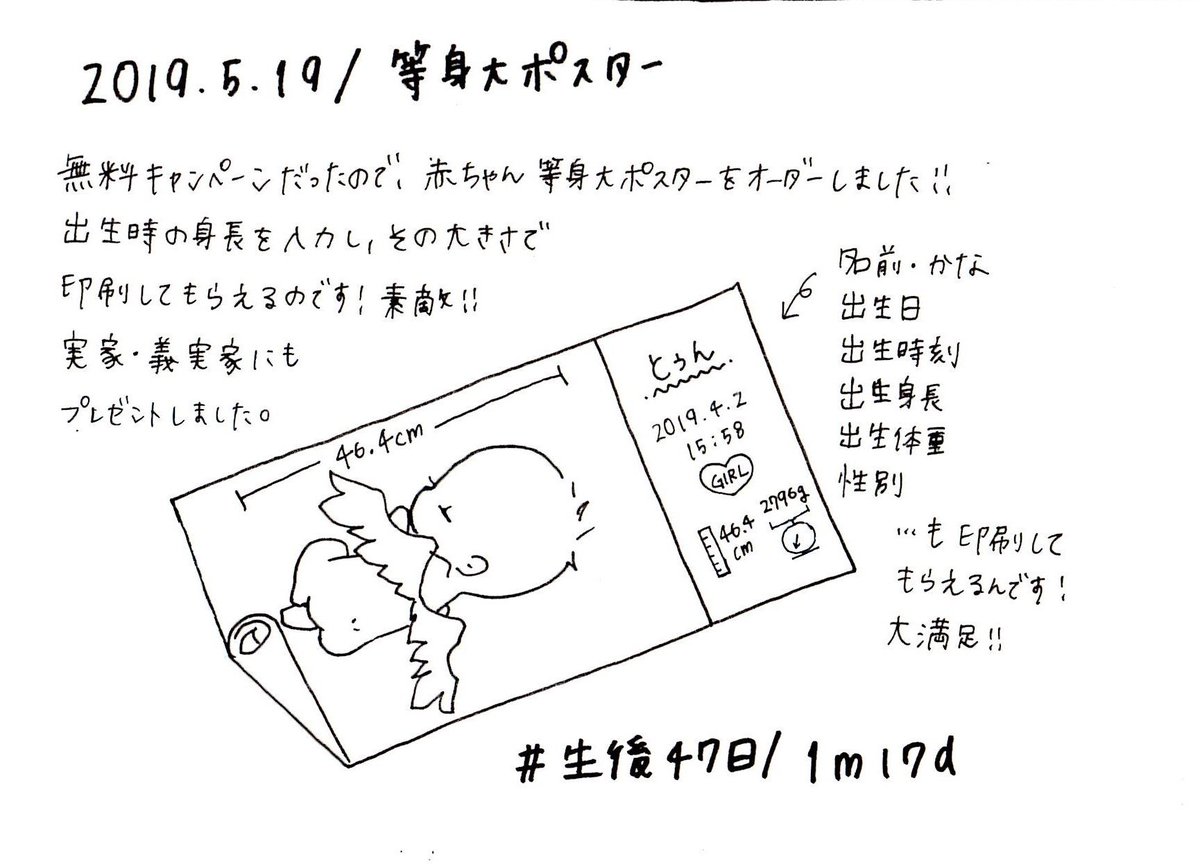 2019.5.19/ 等身大ポスター
無料キャンペーンだったので、赤ちゃん等身大ポスターをオーダーしました!!
出生時の身長を入力し、その大きさで
印刷してもらえるのです! 素敵!!
実家・義実家にも
プレゼントしました。
46.4cm
とぅん
2019.4.2
15:58
GIRL
46.4
cm
2796g
名前・かな
出生日
出生時刻
出生身長
出生体重
性別
…も印刷して
もらえるんです!
大満足!!
#生後47日/ 1m17d